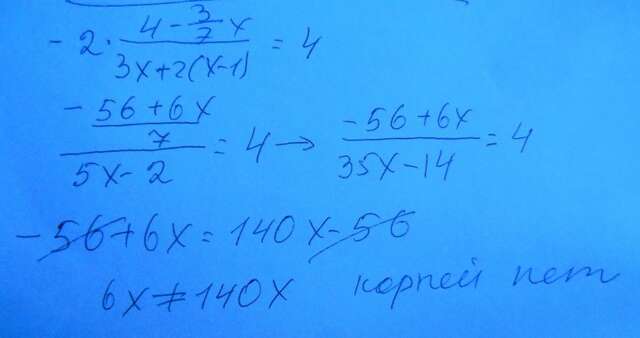 -2 · (4 - 3/7 x)/(3x+2(x-1)) = 4
((-56+6x)/7)/(5x-2) = 4 → (-56+6x)/(35x-14) = 4
-56+6x = 140x-56
6x ≠ 140x корней нет